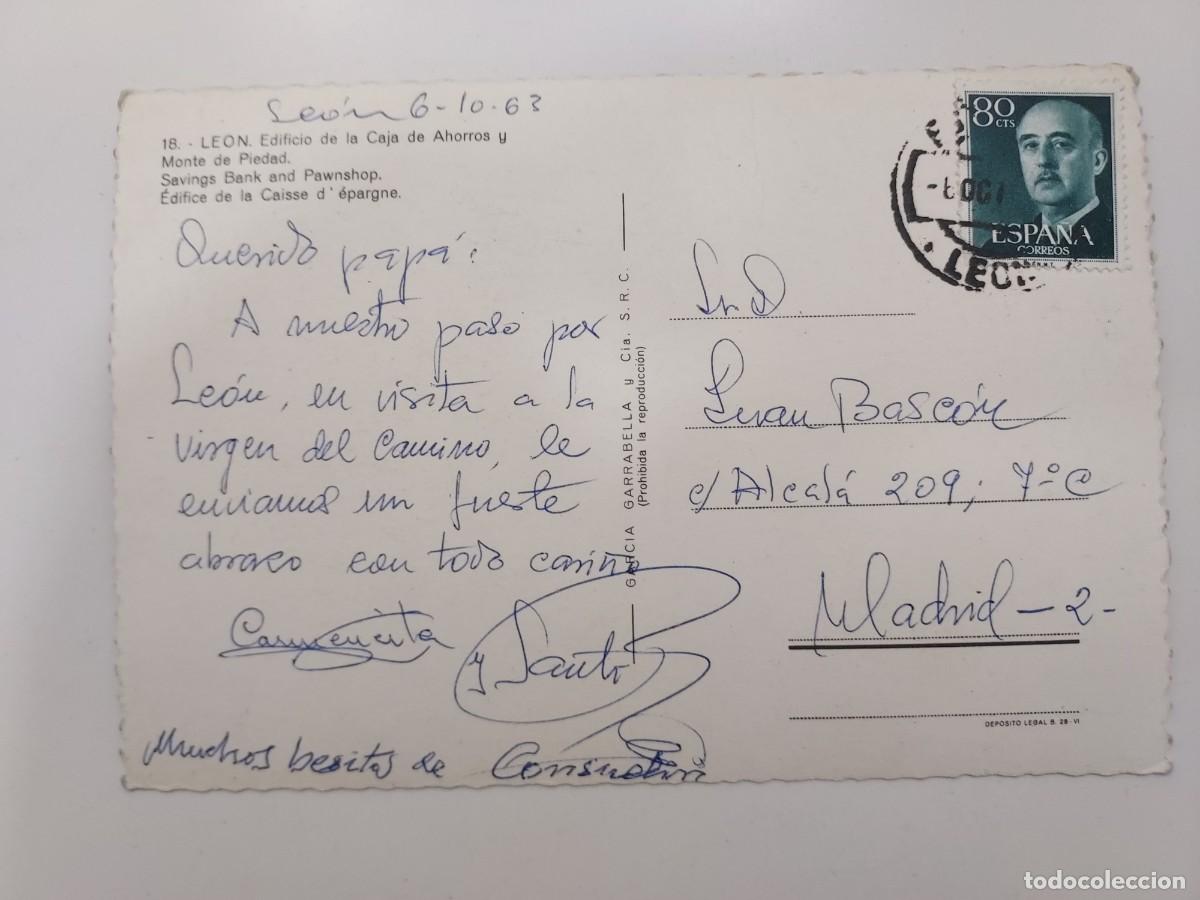 León 6-10-63
18. - LEON. Edificio de la Caja de Ahorros y
Monte de Piedad.
Savings Bank and Pawnshop.
Édifice de la Caisse d' épargne.
Querido papá:
A nuestro paso por
León, en visita a la
Virgen del Camino, le
enviamos un fuerte
abrazo con todo cariño
Carmencita
y Santi
Muchos besitos de
GARCIA GARRABELLA y Cia. S. R. C.
(Prohibida la reproducción)
80
CTS
ESPAÑA
CORREOS
-6 OCT
LEON
Sr. D.
Juan Bascón
c/ Alcalá 209, 7º C
Madrid - 2 -
DEPOSITO LEGAL B. 28 - VI
todocoleccion